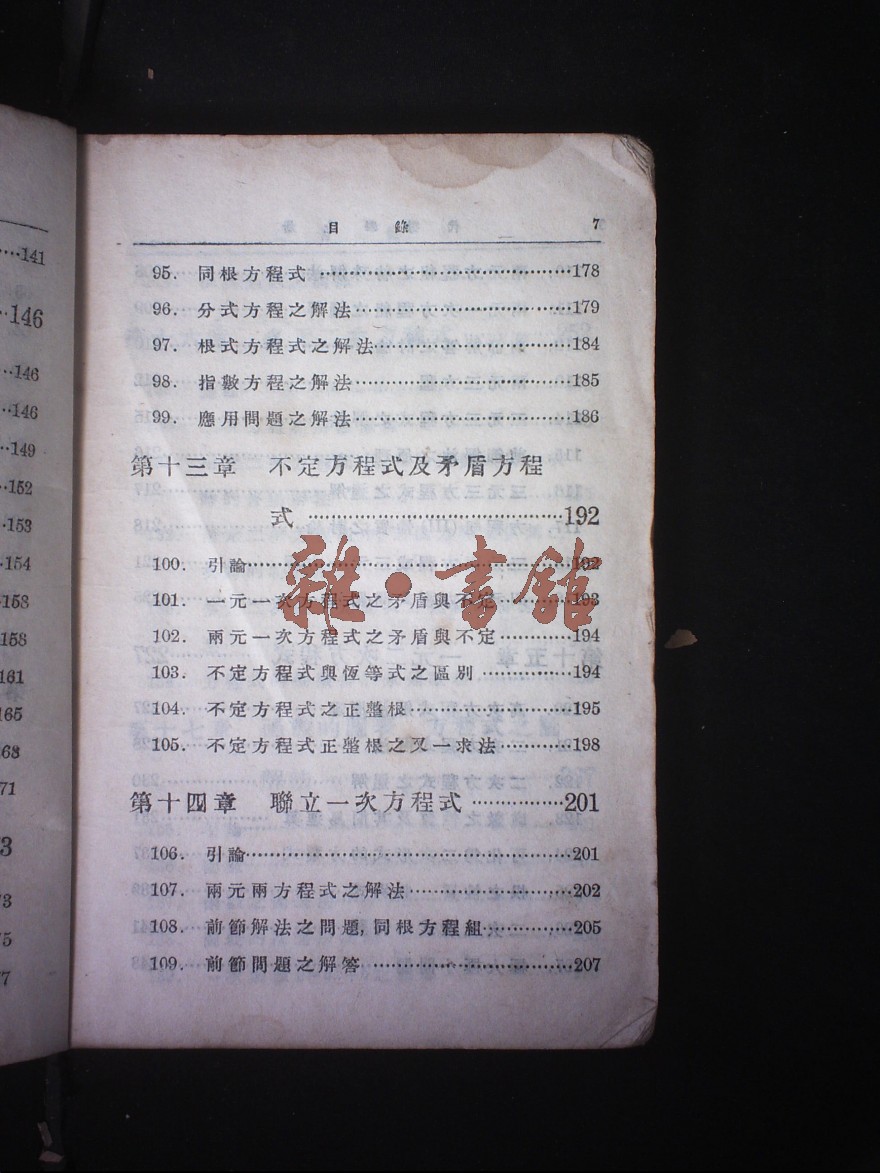 141
146
146
146
149
152
153
154
158
158
161
165
目錄 7
95. 同根方程式 ……178
96. 分式方程之解法……179
97. 根式方程式之解法……184
98. 指數方程之解法……185
99. 應用問題之解法……186
第十三章 不定方程式及矛盾方程
式……192
100. 引論……192
101. 一元一次方程式之矛盾與不定……193
102. 兩元一次方程式之矛盾與不定……194
103. 不定方程式與恆等式之區別……194
104. 不定方程式之正整根……195
105. 不定方程式正整根之又一求法……198
第十四章 聯立一次方程式……201
106. 引論……201
107. 兩元兩方程式之解法……202
108. 前節解法之問題,同根方程組……205
109. 前節問題之解答……207
雜·書館